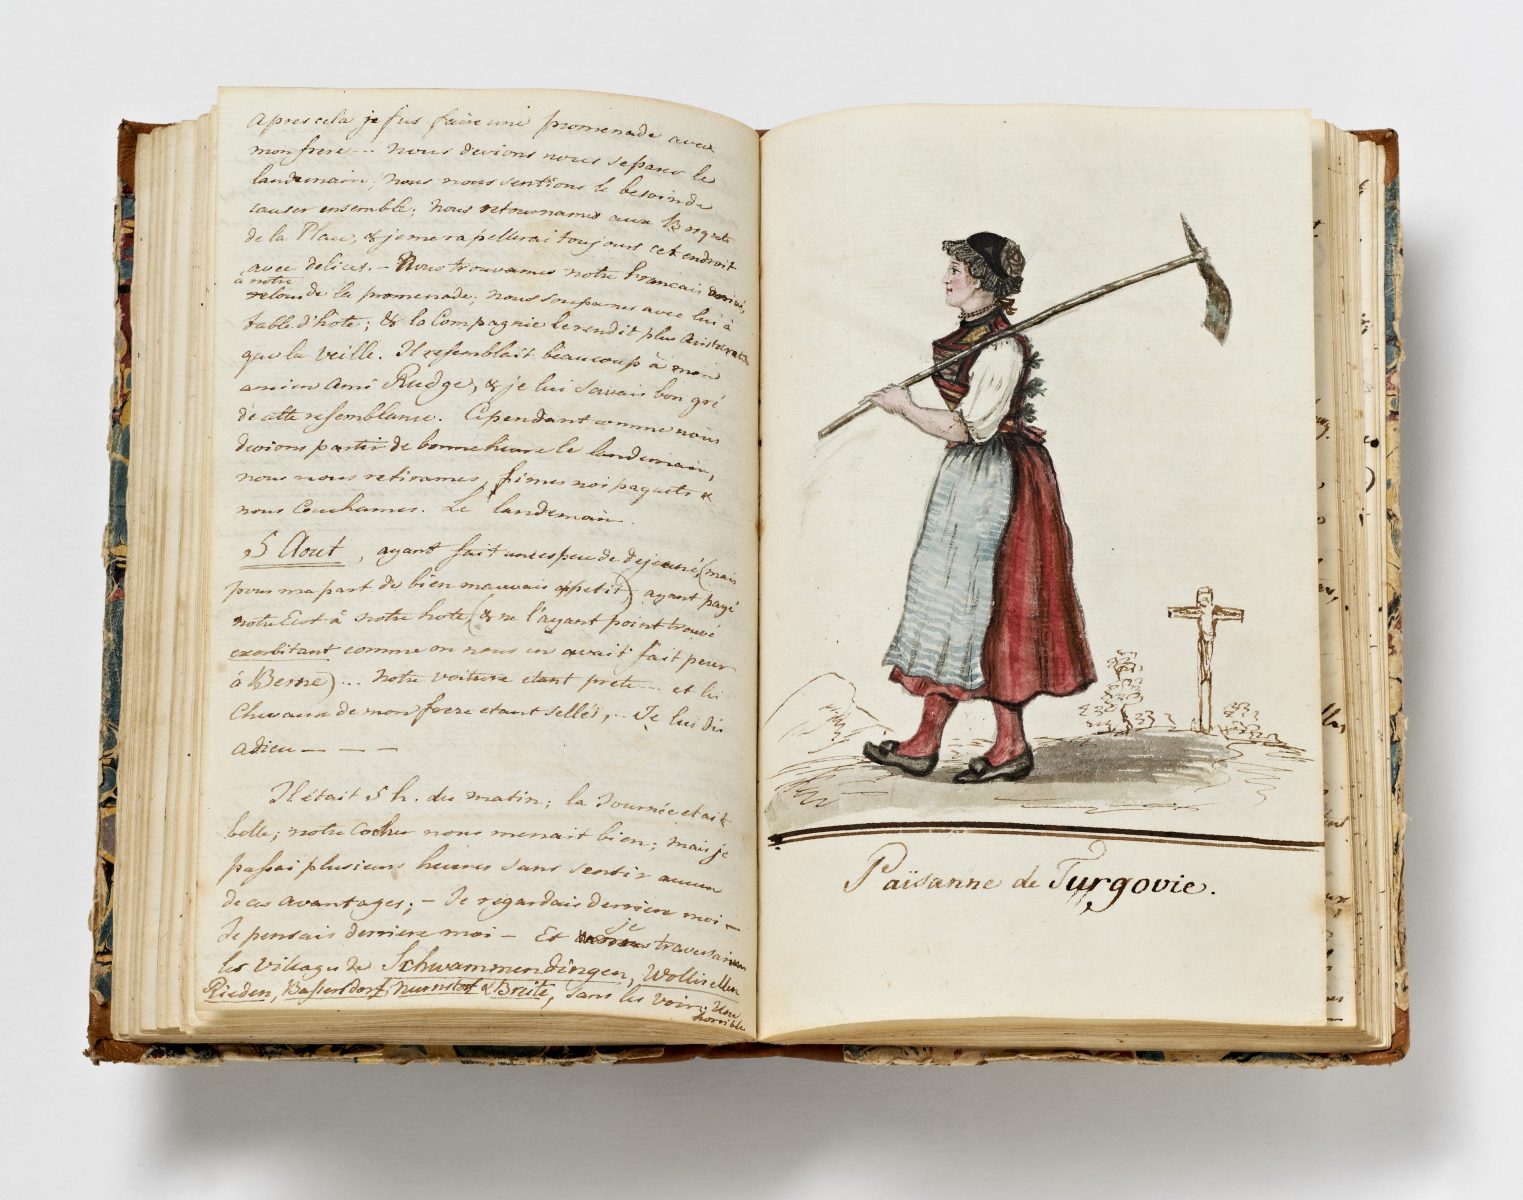 Apres cela je fus faire une promenade avec
mon frere --- nous devions nous separer le
landemain; nous nous sentions le besoin de
causer ensemble; nous retournames aux Bosquets
de la Platz, & je me rapellerai toujours cet endroit
avec delices. — Nous trouvames notre francais arrivé,
à notre
retour de la promenade; nous soupames avec lui à
table d'hote; & la Compagnie le rendit plus Aristocrate
que la veille. Il resemblait beaucoup à mon
ancien Ami Rudge, & je lui savais bon gré
de cette resemblance. Cependant comme nous
devions partir de bonne heure le landemain,
nous nous retirames, fimes nos paquets &
nous Couchames. Le landemain.
5 Aout, ayant fait une espece de dejeuné, (mais
pour ma part de bien mauvais appetit) ayant payé
notre Ecot à notre hote (& ne l'ayant point trouvé
exorbitant comme on nous en avait fait peur
à Berne) ... notre voiture etant prete --- et les
Chevaux de mon frere etant sellés, .. Je lui dis
adieu — — —
Il était 5 h. du matin; la Journée etait
belle; notre Cocher nous menait bien; mais je
passai plusieurs heures sans sentir aucun
de ces avantages; — Je regardais derriere moi —
Je pensais derriere moi — Et je traversais
les Villages de Schwammendingen, Wollisellen
Rieden, Bassersdorf, Nurnstorf & Breite, sans les voir. Une
horrible
Païsanne de Turgovie.